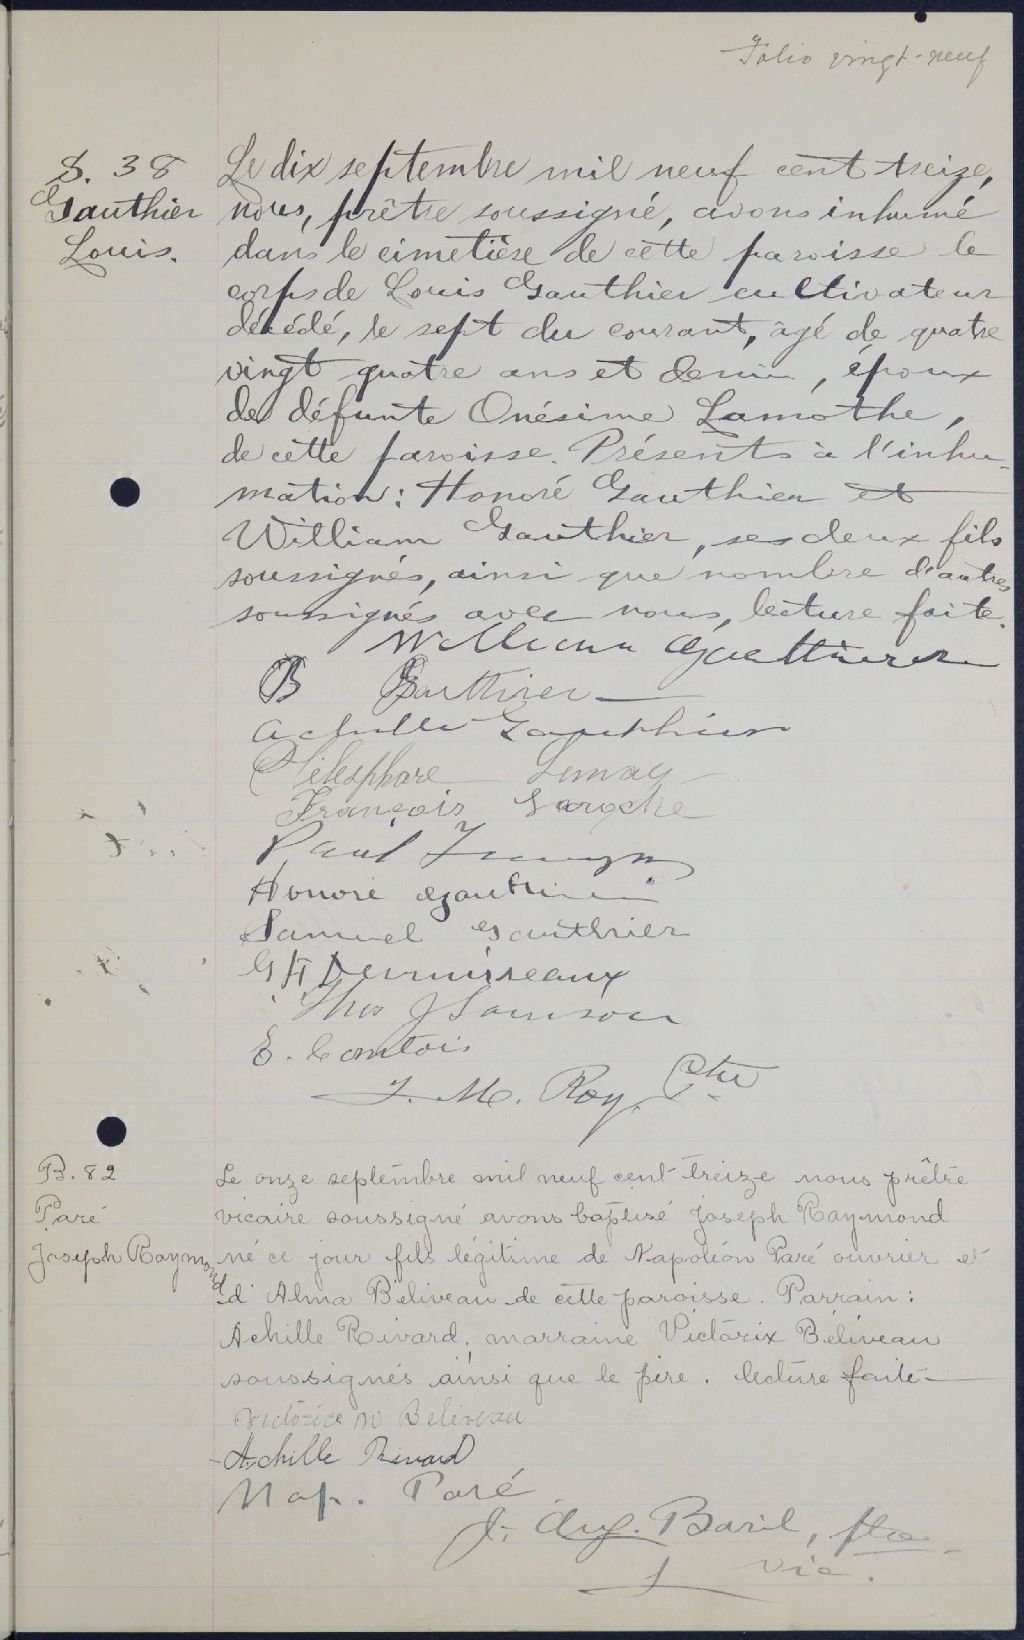 Folio vingt-neuf
S. 38
Gauthier
Louis.
Le dix septembre mil neuf cent treize,
nous, prêtre soussigné, avons inhumé
dans le cimetière de cette paroisse le
corps de Louis Gauthier cultivateur
décédé, le sept du courant, âgé de quatre
vingt quatre ans et demi, époux
de défunte Onésime Lamothe,
de cette paroisse. Présents à l'inhu-
mation: Honoré Gauthier et
William Gauthier, ses deux fils
soussignés, ainsi que nombre d'autres
soussignés avec nous, lecture faite.
William Gauthier
B Gauthier
Achille Gauthier
Télesphore Lemay
François Laroche
Paul
Honoré Gauthier
Samuel Gauthier
G H Desruisseaux
Thos J Samson
E. Comtois
J. M. Roy, Ptre
B. 82
Paré
Joseph Raymond
Le onze septembre mil neuf cent treize nous prêtre
vicaire soussigné avons baptisé Joseph Raymond
né ce jour fils légitime de Napoléon Paré ouvrier et
d'Alma Béliveau de cette paroisse. Parrain:
Achille Rivard, marraine Victorix Béliveau
soussignés ainsi que le père. lecture faite
Victorice M Beliveau
Achille Rivard
Nap. Paré
J. Aug. Baril, ptre
vic.